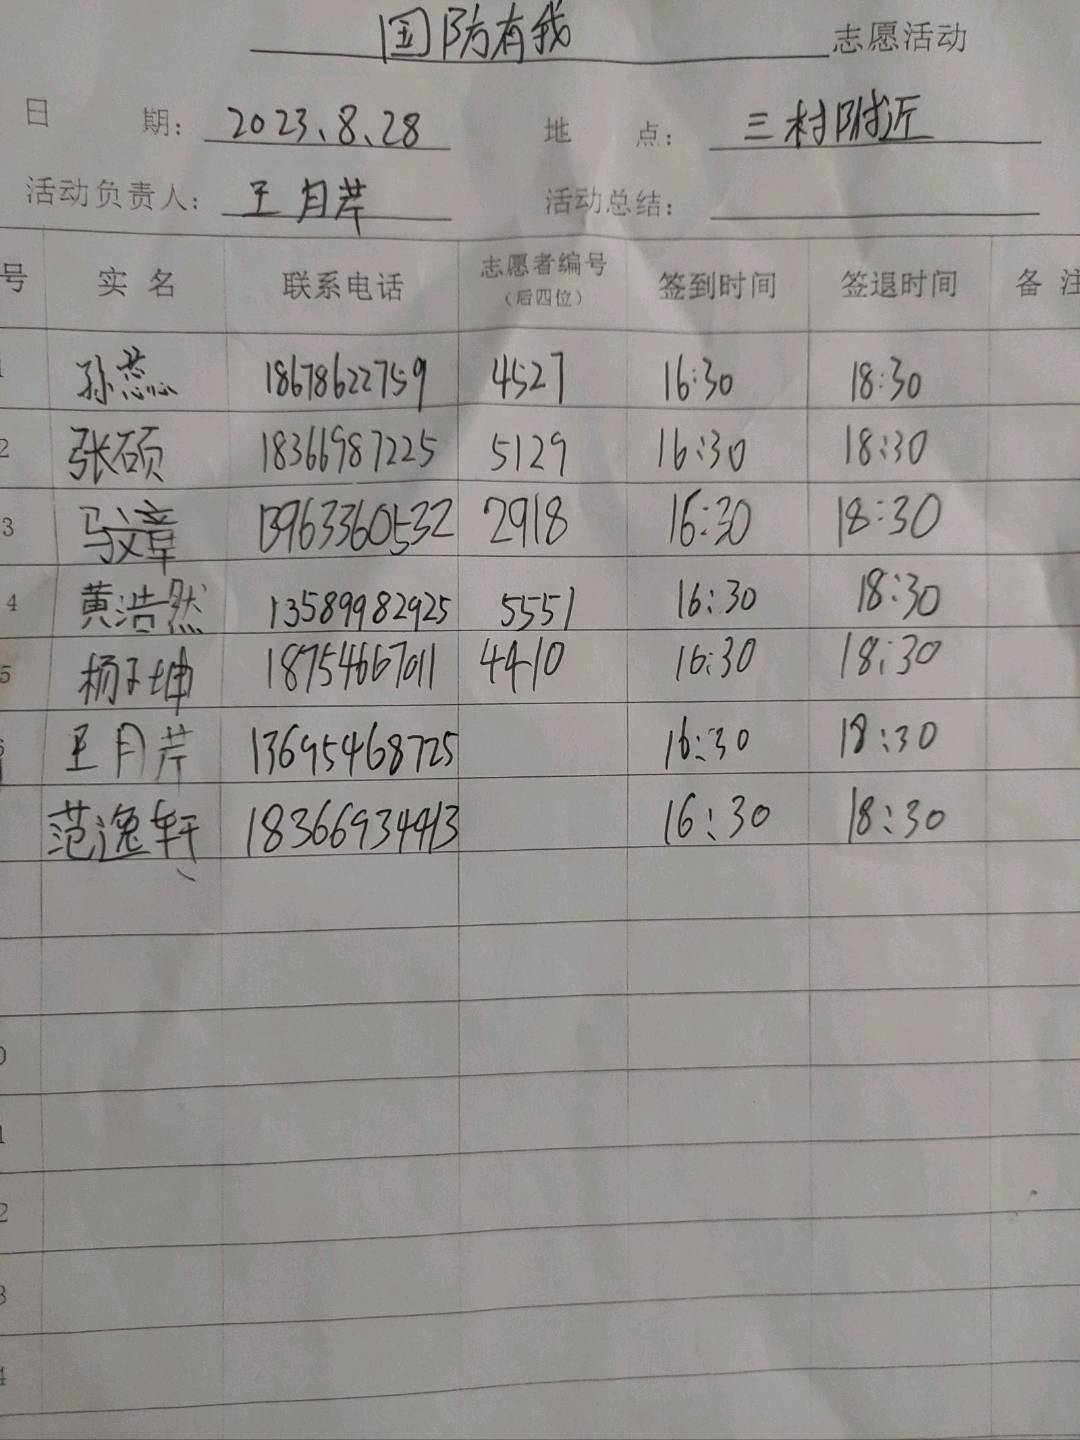 国防有我 志愿活动
日 期: 2023、8、28 地 点: 三村附近
活动负责人: 王月芹 活动总结:
号 实 名 联系电话 志愿者编号(后四位) 签到时间 签退时间 备 注
1 孙蕊 18678622759 4527 16:30 18:30
2 张硕 18366987225 5129 16:30 18:30
3 马文章 13963360532 2918 16:30 18:30
4 黄浩然 13589982925 5551 16:30 18:30
5 杨子坤 18754667011 4410 16:30 18:30
6 王月芹 13695468725 16:30 18:30
范逸轩 18366934413 16:30 18:30
0
1
2
3
4